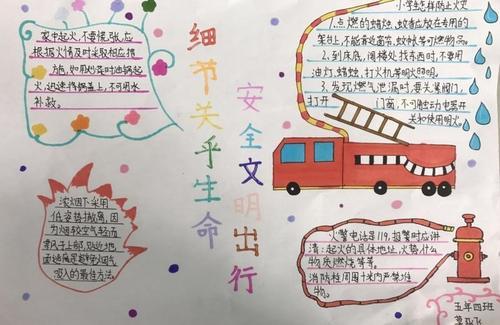 家中起火,不要慌张,应
根据火情及时采取相应措
施,如用炒菜时油锅起
火,迅速将锅盖上,不可用水
补救。
浓烟下采用
低姿势撤离,因
为烟较空气轻而
飘
是
吸入的最佳方法。
细节关乎生命
安全文明出行
小学生怎样防止火灾
1,点燃的蜡烛,蚊香应放在专用的
架台上,不能靠近窗帘,蚊帐等可燃物品。
2,到床底,阁楼处找东西时,不要用
油灯,蜡烛,打火机等明火照明。
3,发现燃气泄漏时,要关紧阀门,
打开
门窗,不可触动电器开
关和使用明火。
火警电话是119,报警时应讲
清:起火的具体地址,火势,什么
物质燃烧等等。
消防栓周围十米内严禁堆
物。
五年四班